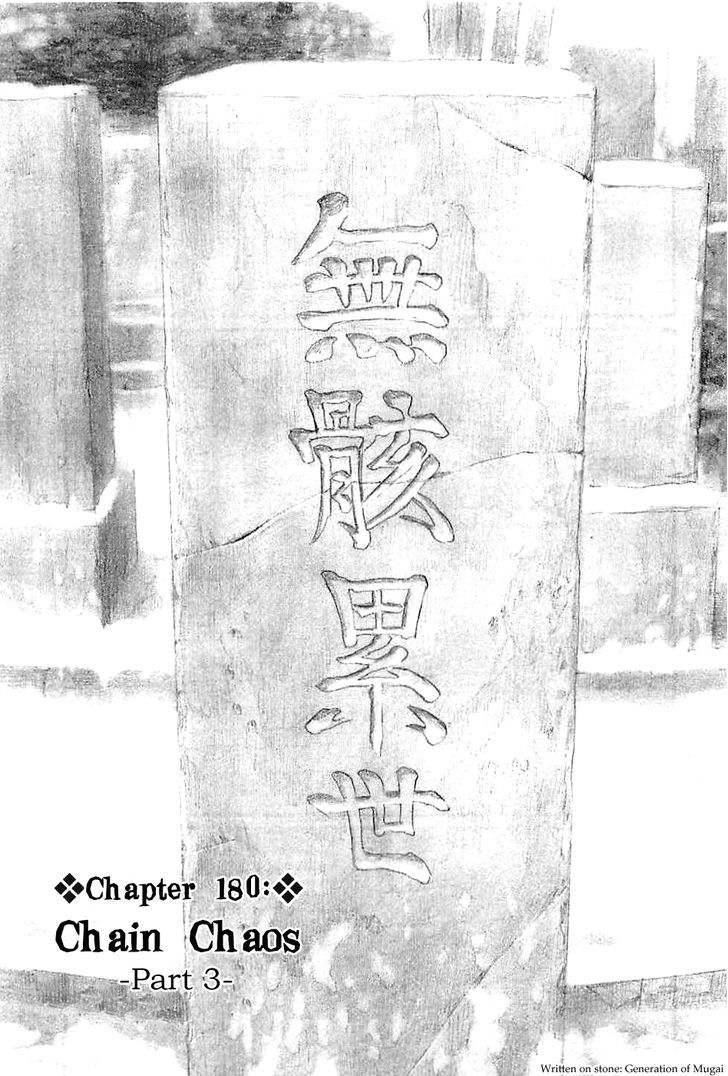 無骸累世
❖Chapter 180:❖
Chain Chaos
-Part 3-
Written on stone: Generation of Mugai